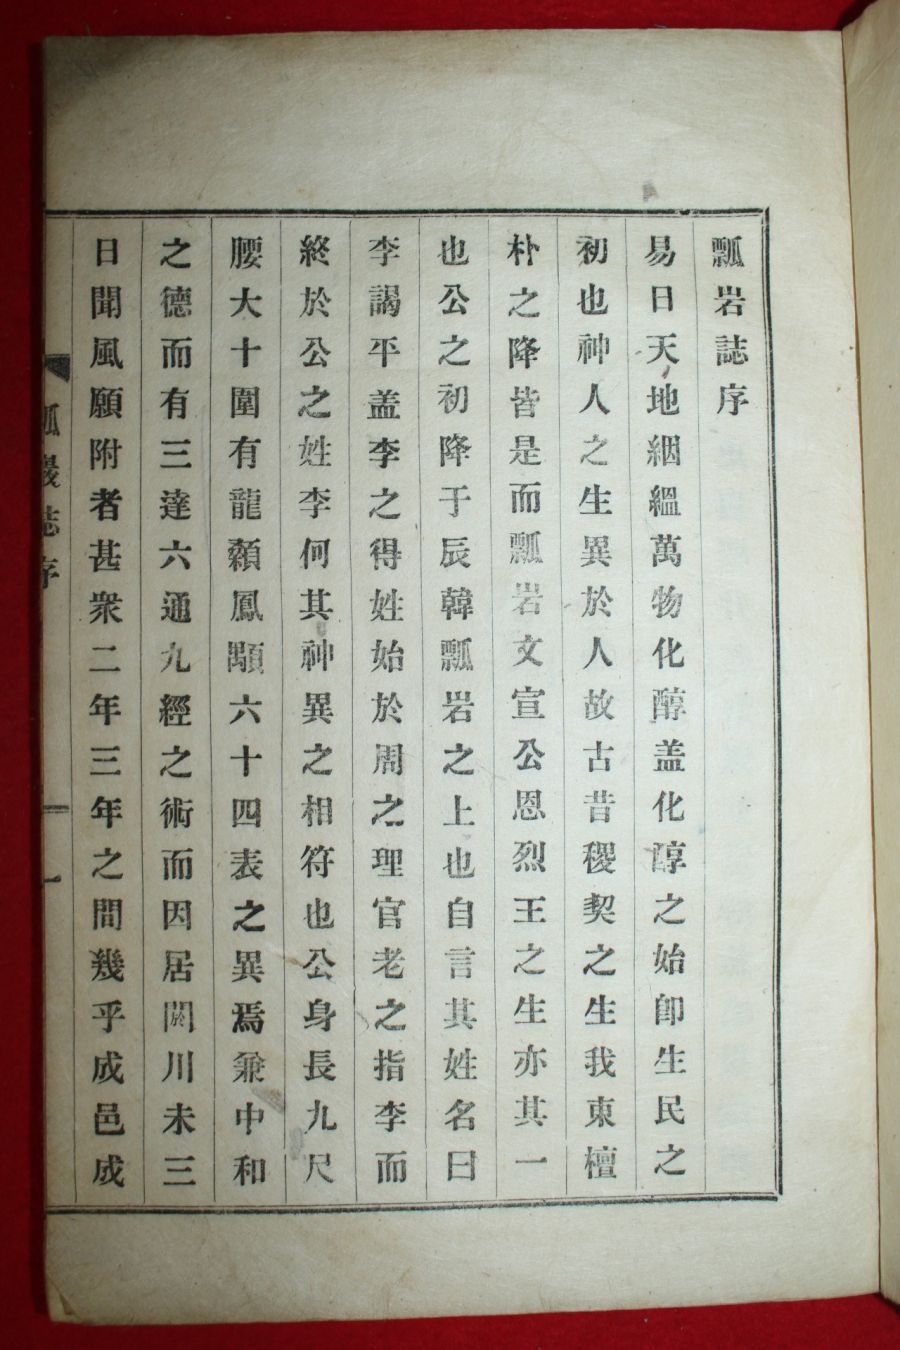 瓢岩誌序
易日天地絪縕萬物化醇盖化醇之始卽生民之
初也神人之生異於人故古昔稷契之生我東檀
朴之降皆是而瓢岩文宣公恩烈王之生亦其一
也公之初降于辰韓瓢岩之上也自言其姓名曰
李謁平盖李之得姓始於周之理官老之指李而
終於公之姓李何其神異之相符也公身長九尺
腰大十圍有龍顙鳳顒六十四表之異焉兼中和
之德而有三達六通九經之術而因居閼川未三
日聞風願附者甚衆二年三年之間幾乎成邑成
瓢巖誌序 一